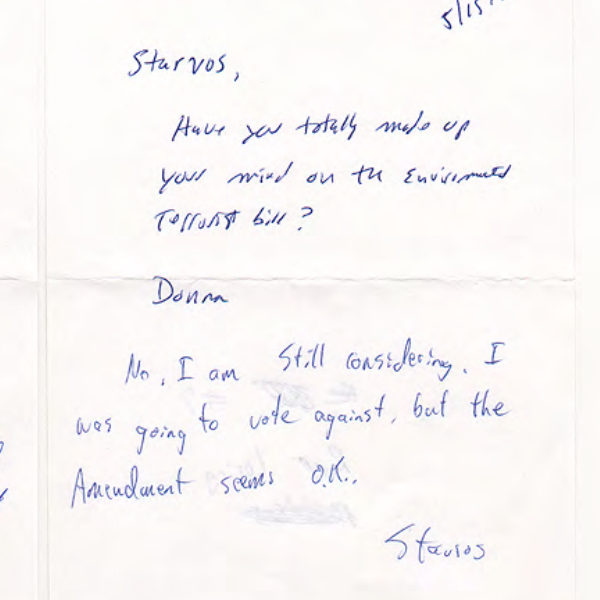 5/15
Starvos,
Have you totally made up
your mind on the Enviromental
Terrorist bill?
Donna
No, I am still considering. I
was going to vote against, but the
Amendment seems O.K..
Stavros